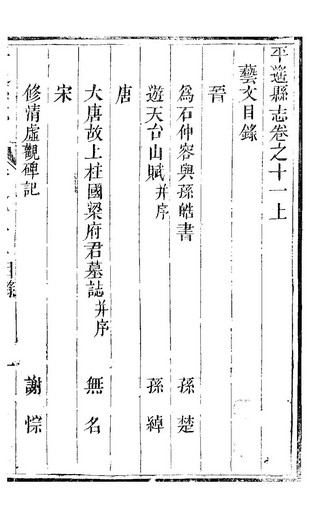 平遙縣志卷之十一上
藝文目錄
晉
爲石仲容與孫皓書 孫楚
遊天台山賦并序 孫綽
唐
大唐故上柱國梁府君墓誌并序 無名
宋
修情虛觀碑記 謝悰
目錄